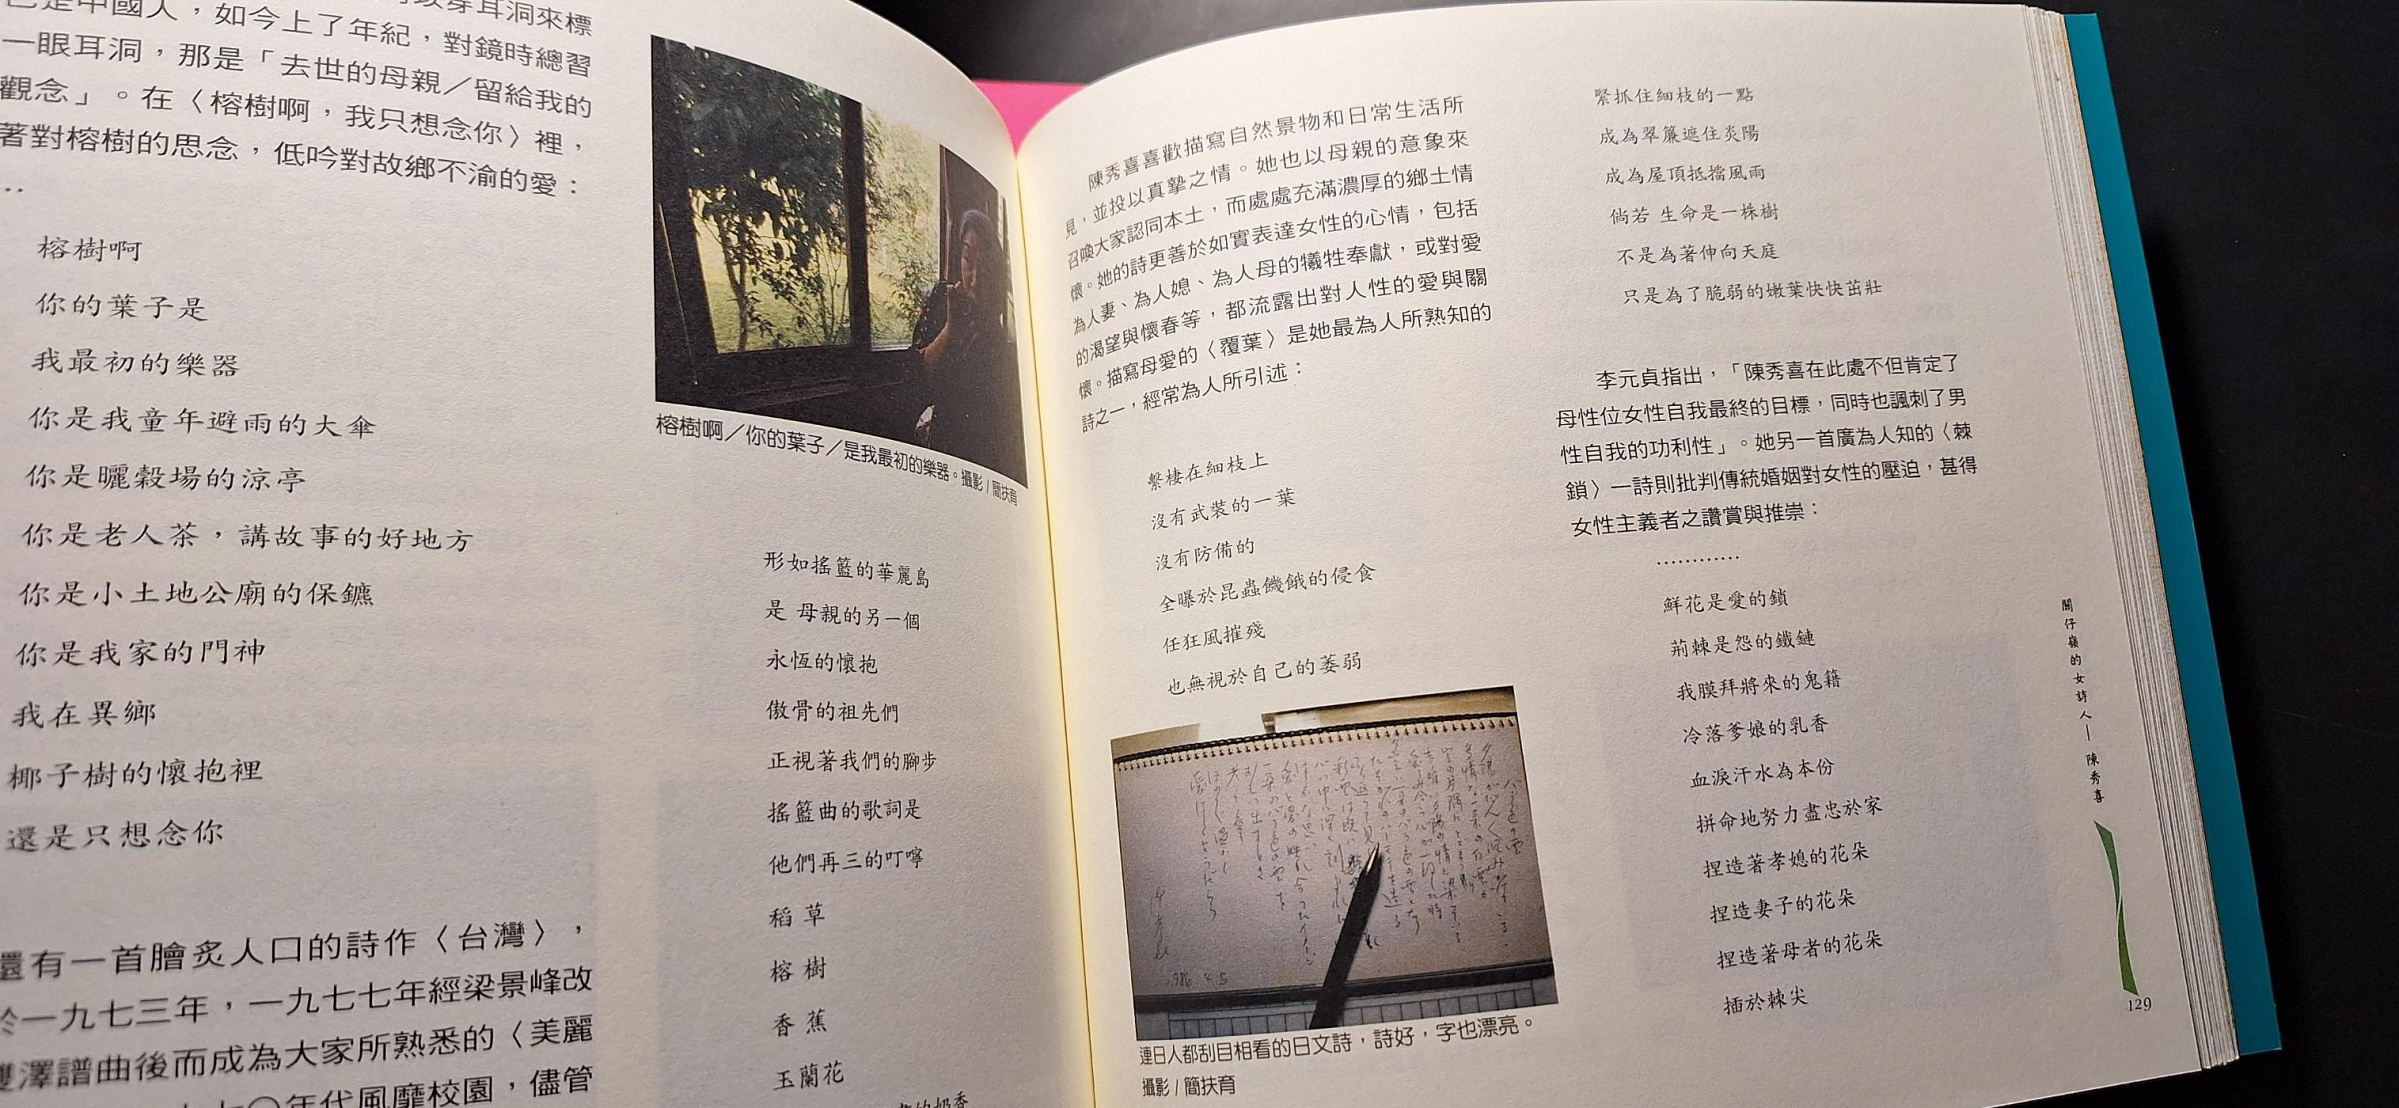 也是中國人，如今上了年紀，對鏡時總習
一眼耳洞，那是「去世的母親／留給我的
觀念」。在〈榕樹啊，我只想念你〉裡，
著對榕樹的思念，低吟對故鄉不渝的愛：
榕樹啊
你的葉子是
我最初的樂器
你是我童年避雨的大傘
你是曬穀場的涼亭
你是老人茶，講故事的好地方
你是小土地公廟的保鑣
你是我家的門神
我在異鄉
椰子樹的懷抱裡
還是只想念你
還有一首膾炙人口的詩作〈台灣〉，
於一九七三年，一九七七年經梁景峰改
雙澤譜曲後而成為大家所熟悉的〈美麗
七〇年代風靡校園，儘管
榕樹啊／你的葉子／是我最初的樂器。攝影／簡扶育
形如搖籃的華麗島
是 母親的另一個
永恆的懷抱
傲骨的祖先們
正視著我們的腳步
搖籃曲的歌詞是
他們再三的叮嚀
稻 草
榕 樹
香 蕉
玉蘭花
的奶香
陳秀喜喜歡描寫自然景物和日常生活所
見，並投以真摯之情。她也以母親的意象來
召喚大家認同本土，而處處充滿濃厚的鄉土情
懷。她的詩更善於如實表達女性的心情，包括
為人妻、為人媳、為人母的犧牲奉獻，或對愛
的渴望與懷春等，都流露出對人性的愛與關
懷。描寫母愛的〈覆葉〉是她最為人所熟知的
詩之一，經常為人所引述：
繫棲在細枝上
沒有武裝的一葉
沒有防備的
全曝於昆蟲饑餓的侵食
任狂風摧殘
也無視於自己的萎弱
連日人都刮目相看的日文詩，詩好，字也漂亮。
攝影／簡扶育
緊抓住細枝的一點
成為翠簾遮住炎陽
成為屋頂抵擋風雨
倘若 生命是一株樹
不是為著伸向天庭
只是為了脆弱的嫩葉快快茁壯
李元貞指出，「陳秀喜在此處不但肯定了
母性位女性自我最終的目標，同時也諷刺了男
性自我的功利性」。她另一首廣為人知的〈棘
鎖〉一詩則批判傳統婚姻對女性的壓迫，甚得
女性主義者之讚賞與推崇：
…………
鮮花是愛的鎖
荊棘是怨的鐵鏈
我膜拜將來的鬼籍
冷落爹娘的乳香
血淚汗水為本份
拼命地努力盡忠於家
捏造著孝媳的花朵
捏造妻子的花朵
捏造著母者的花朵
插於棘尖
關仔嶺的女詩人—陳秀喜
129